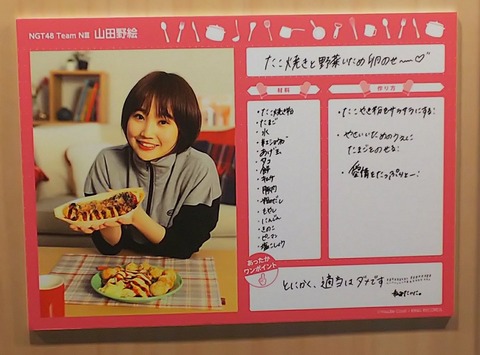 NGT48 Team NⅢ 山田野絵
たこ焼きと野菜いため 卵のせ〜♡
材料
・たこ焼き粉
・たまご
・水
・紅しょうが
・あげ玉
・タコ
・豚肉
・もやし
・にんじん
・きのこ
・ピーマン
・塩こしょう
作り方
・たこやき粉を
・やさいいためのうえに
たまごをのせる!
・愛情をたっぷり
あったか
ワンポイント
とにかく、適当はダメです